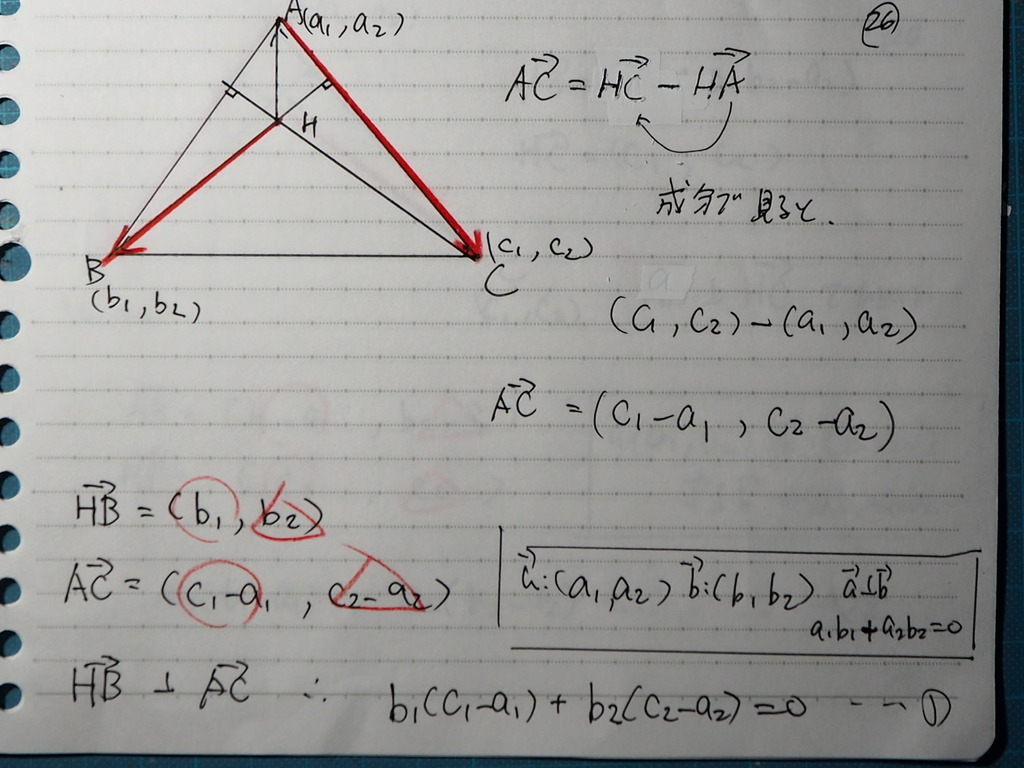 A(a₁, a₂)
㉖
H
B
(b₁, b₂)
(c₁, c₂)
C
→AC = →HC − →HA
成分で見ると.
(c₁, c₂) − (a₁, a₂)
→AC = (c₁−a₁, c₂−a₂)
→HB = (b₁, b₂)
→AC = (c₁−a₁, c₂−a₂)
→a:(a₁, a₂) →b:(b₁ b₂) →a⊥→b
a₁b₁+a₂b₂=0
→HB ⊥ →AC ∴ b₁(c₁−a₁) + b₂(c₂−a₂) = 0 --- ①